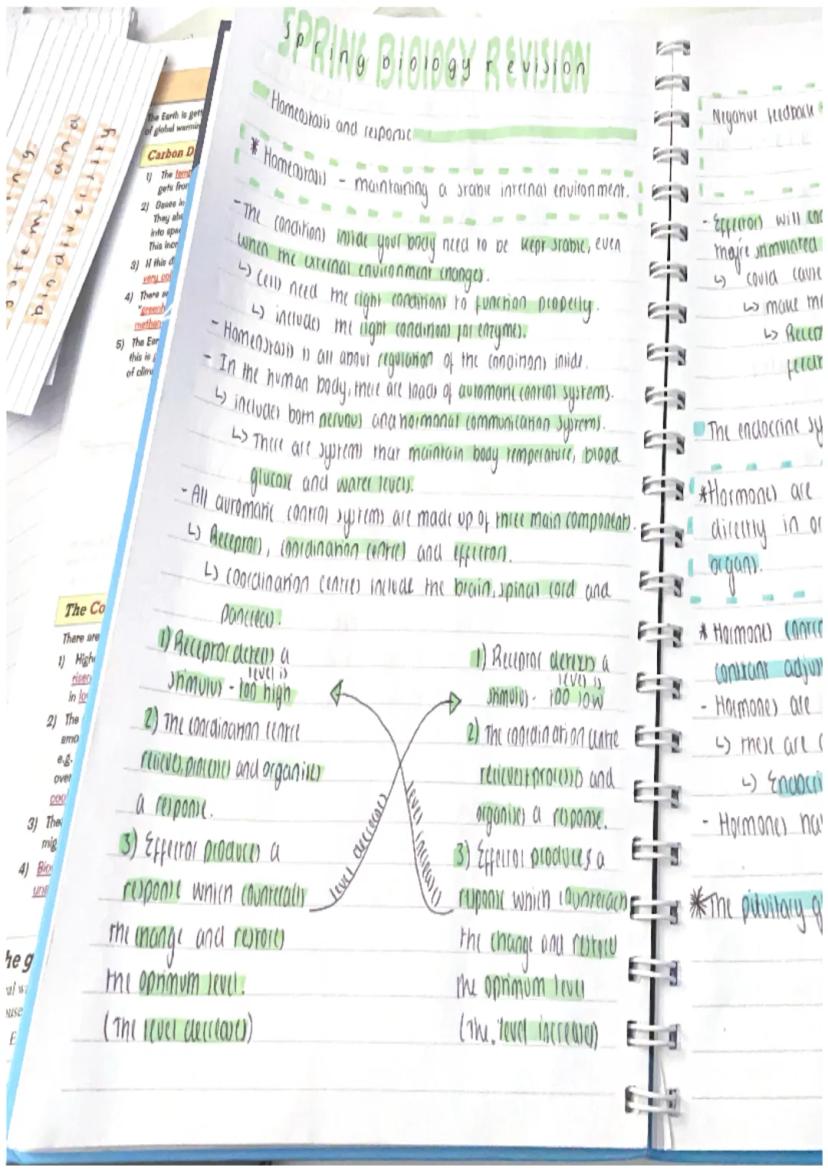 SPRING BIOLOGY REVISION
spring biology revision
Homeostasis and response
* Homeostasis - maintaining a stable internal environment.
- The conditions inside your body need to be kept stable, even
when the external environment changes.
↳ Cells need the right conditions to function properly.
↳ includes the right conditions for enzymes.
- Homeostasis is all about regulation of the conditions inside.
- In the human body, there are loads of automatic control systems.
↳ includes both nervous and hormonal communication systems.
↳ There are systems that maintain body temperature, blood
glucose and water levels.
- All automatic control systems are made up of three main components.
↳ Receptors, coordination centres and effectors.
↳ coordination centres include the brain, spinal cord and
pancreas.
1) Receptor detects a
stimulus - level is too high
2) The coordination centre
recieves, processes and organises
a response.
3) Effector produces a
response which counteracts
the change and restores
the optimum level.
(The level decreases)
level decreases
level increases
1) Receptor detects a
stimulus - level is too low
2) The coordination centre
recieves + processes and
organises a response.
3) Effector produces a
response which counteracts
the change and restores
the optimum level
(The level increases)
Negative feedback
- Effectors will
stimulated
↳ could cause
↳ make
↳ 
The endocrine
* Hormones are
directly in
organs.
* Hormones
constant
- Hormones are
↳ these are
↳
- Hormones
* The pituitary
systems and
biodiversity
The Earth is
of global
Carbon
1) The
gets from
2)
They
into
This
3) If this
4) There
methane
5) The
this is
The
There are
1) High
in
2) The
e.g.
over
3)
4)